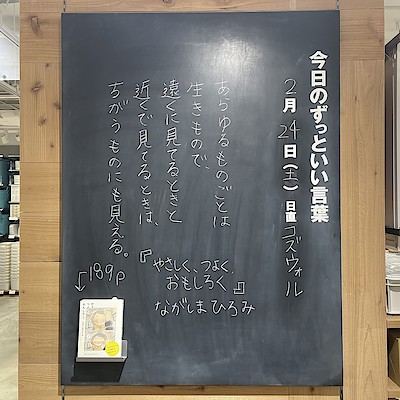 今日のずっといい言葉
2月24日(土) 日直 コズウォル
あらゆるものごとは
生きもので、
遠くに見てるときと
近くで見てるときは、
ちがうものにも見える。
『やさしく、つよく、
おもしろく』
ながしまひろみ
189p